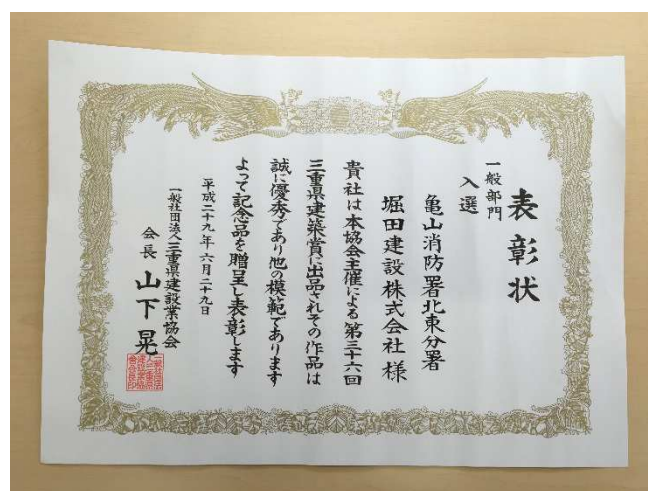 表彰状
一般部門
入選
亀山消防署北東分署
堀田建設株式会社様
貴社は本協会主催による第三十六回
三重県建築賞に出品されその作品は
誠に優秀であり他の模範であります
よって記念品を贈呈し表彰します
平成二十九年六月二十九日
一般社団法人三重県建設業協会
会長 山下晃